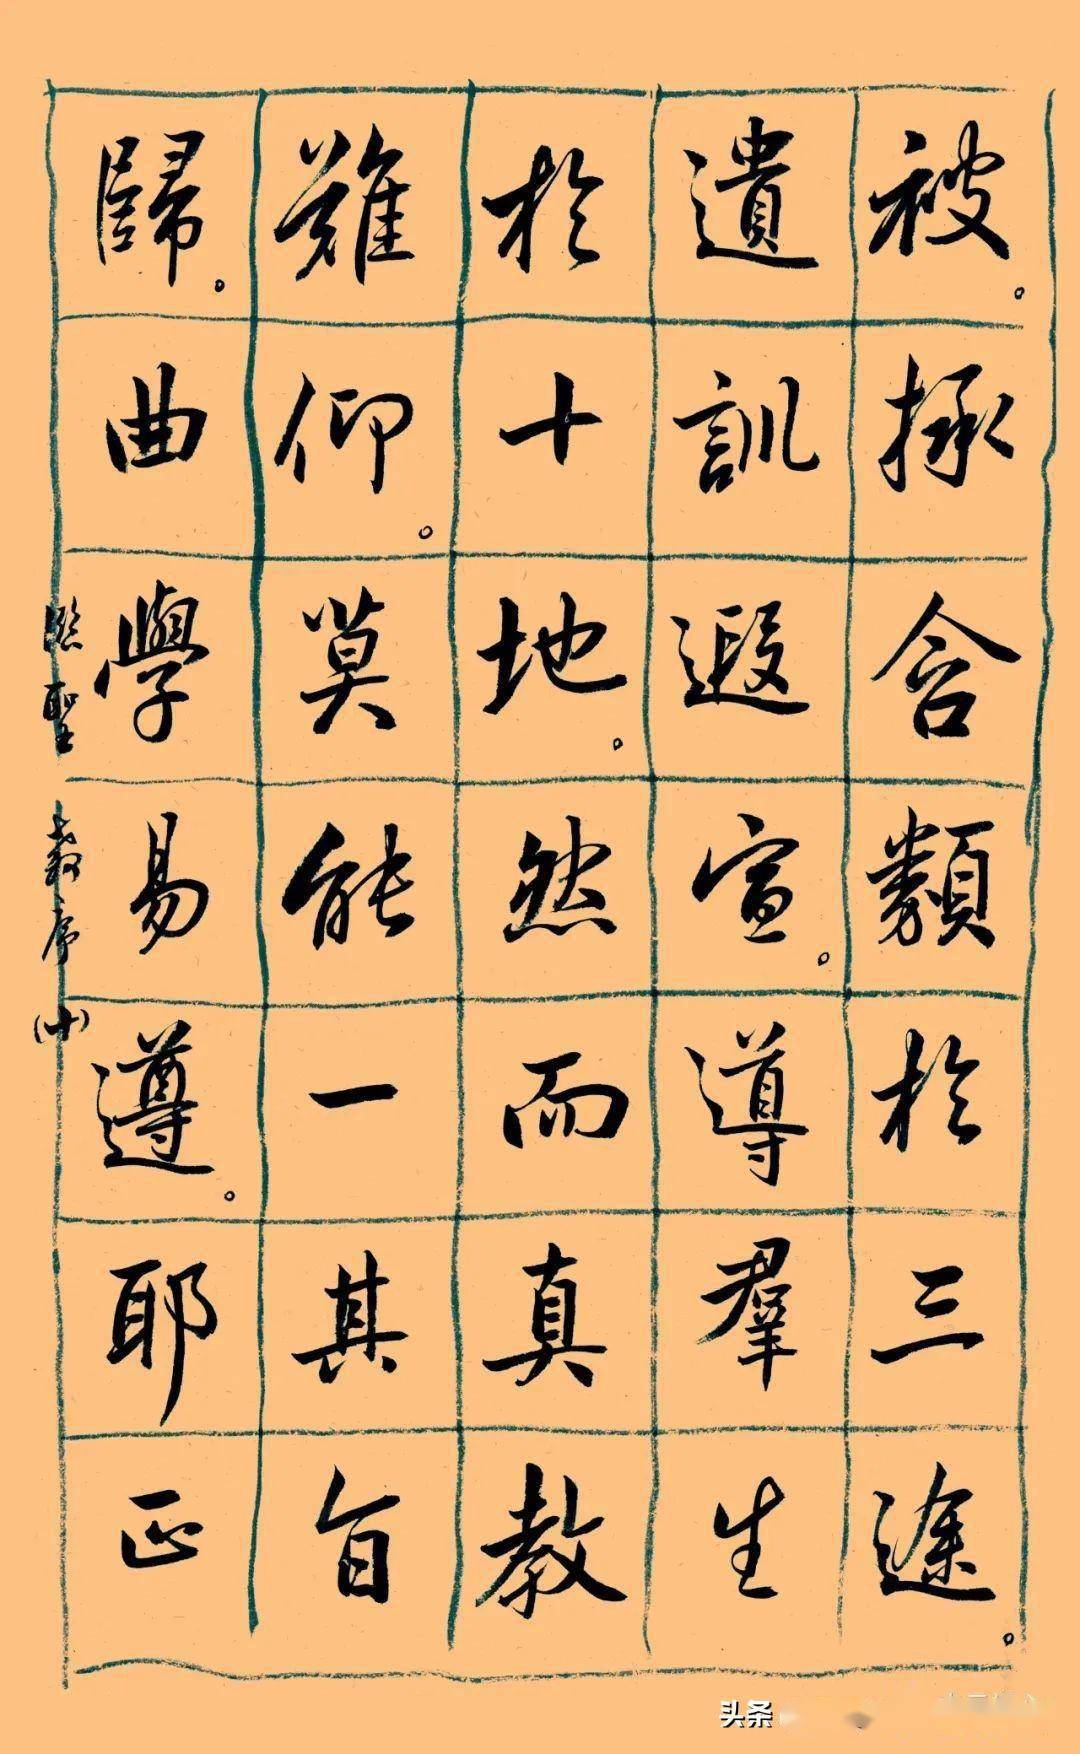 被。拯含類於三途。
遺訓遐宣。導羣生
於十地。然而真教
難仰。莫能一其旨
歸。曲學易遵。耶正
臨聖教序(十)
头条